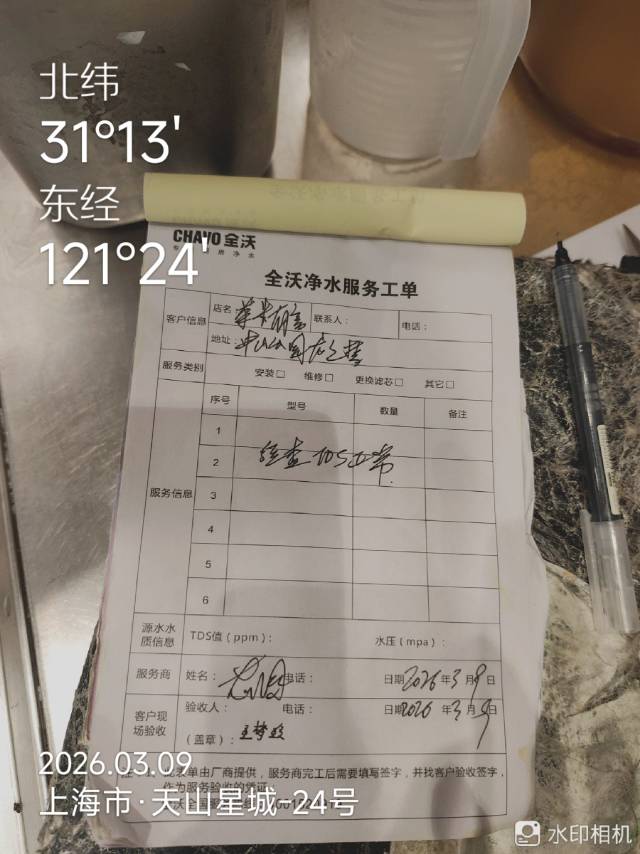 北纬
31°13'
东经
121°24'
CHAVO 全沃
全沃净水服务工单
客户信息
店名:
联系人:
电话:
地址:
服务类别
安装□ 维修□ 更换滤芯□ 其它□
服务信息
序号 型号 数量 备注
1
2 检查TDS正常
3
4
5
6
源水水质信息
TDS值(ppm): 水压(mpa):
服务商
姓名: 电话: 日期2026年3月9日
客户现场验收
验收人: 电话: 日期2026年3月9
(盖章):
表单由厂商提供,服务商完工后需要填写签字,并找客户验收签字,
作为服务验收的凭证
2026.03.09
上海市·天山星城-24号
水印相机